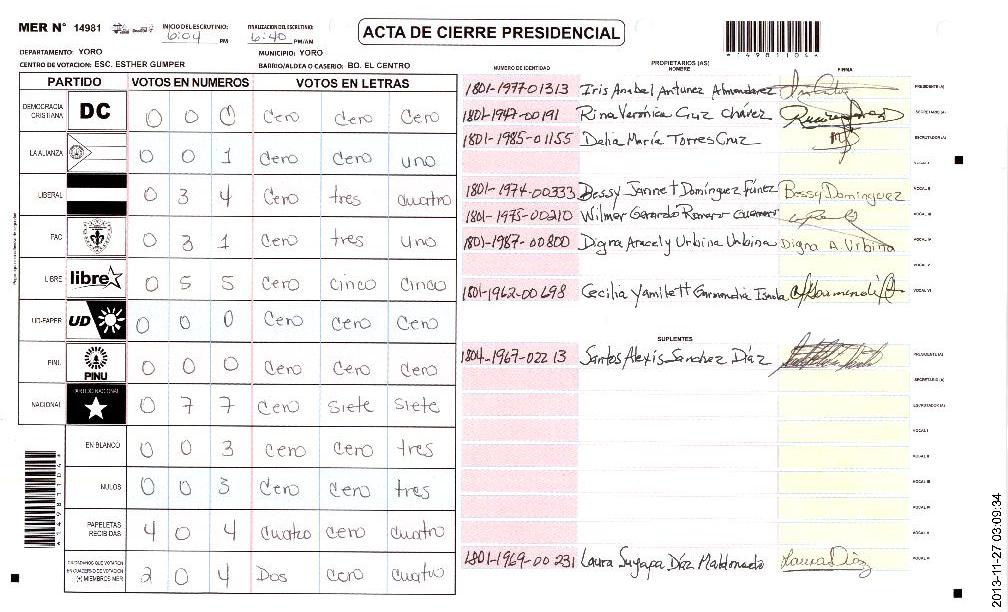 MER N° 14981 INICIO DEL ESCRUTINIO: 6:04 PM FINALIZACION DEL ESCRUTINIO: 6:40 PM/AM
ACTA DE CIERRE PRESIDENCIAL
*14981104*
DEPARTAMENTO: YORO MUNICIPIO: YORO
CENTRO DE VOTACION: ESC. ESTHER GUMPER BARRIO/ALDEA O CASERIO: BO. EL CENTRO
PARTIDO VOTOS EN NUMEROS VOTOS EN LETRAS
DEMOCRACIA CRISTIANA DC 0 0 0 Cero Cero Cero
LA ALIANZA 0 0 1 Cero Cero uno
LIBERAL 0 3 4 Cero tres cuatro
PAC 0 3 1 Cero tres uno
LIBRE libre 0 5 5 Cero cinco Cinco
UD-FAPER UD 0 0 0 Cero Cero Cero
PINU PINU 0 0 0 Cero Cero Cero
NACIONAL PARTIDO NACIONAL 0 7 7 Cero siete siete
EN BLANCO 0 0 3 Cero Cero tres
NULOS 0 0 3 Cero Cero tres
PAPELETAS RECIBIDAS 4 0 4 Cuatro cero cuatro
CIUDADANOS QUE VOTARON EN CUADERNO DE VOTACION (+) MIEMBROS MER 2 0 4 Dos cero cuatro
*14981104*
NUMERO DE IDENTIDAD PROPIETARIOS (AS) NOMBRE FIRMA
1801-1977-01313 Iris Anabel Antunez Almendarez PRESIDENTE (A)
1801-1947-00191 Rina Verónica Cruz Chávez SECRETARIO (A)
1801-1985-01155 Delia María Torres Cruz ESCRUTADOR (A)
VOCAL I
1801-1974-00333 Bessy Jannet Domínguez Fúnez Bessy Domínguez VOCAL II
1801-1975-00210 Wilmer Gerardo Romero Guerrero VOCAL III
1801-1987-00800 Digna Aracely Urbina Urbina Digna A. Urbina VOCAL IV
VOCAL V
1801-1962-00698 Cecilia Yamilett VOCAL VI
SUPLENTES
1804-1967-02213 Santos Alexis Sanchez Díaz PRESIDENTE (A)
SECRETARIO (A)
ESCRUTADOR (A)
VOCAL I
VOCAL II
VOCAL III
VOCAL IV
VOCAL V
1801-1969-00231 Laura Suyapa Díaz Maldonado Laura Díaz VOCAL VI
2013-11-27 03:09:34